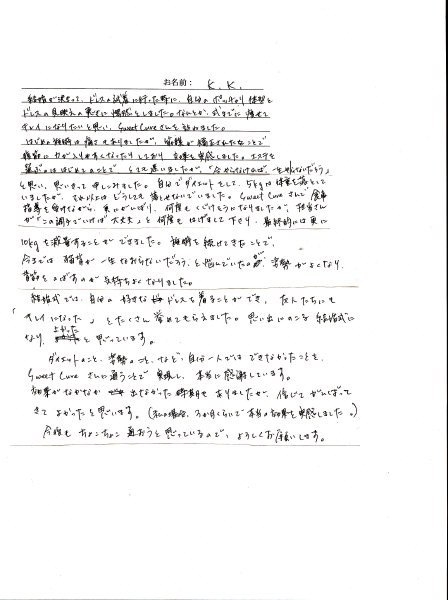 お名前： K. K.
結婚が決まって、ドレスの試着に行った時に、自分のポッチャリ体型と
ドレスの見映えの悪さに愕然としましたのなんとか、式までに痩せて
キレイになりたいと思い、Sweet Cureさんを訪れました。
はじめは施術に痛さもありましたが、猫背が矯正されたことで
腹筋に力が入りやすくなったりしており、効果を実感しました。エステを
選ぶのははじめてのことで とても迷いましたが、「今やらなければ、一生やらないだろう」
と思い、思いきって申しこみました。自分でダイエットをして、5kgは体重を落として
いましたが、それ以上はどうしても落とせないでいました。Sweet Cureさんで食事
指導を受けながら、更にがんばり、何度もくじけそうになりましたが、担当さん
が「この調子でいけば大丈夫」と何度もはげまして下さり、最終的には更に
10kgも減量することができました。施術を続けてきたことで、
今までは猫背が一生なおらないだろう、と悩んでいたのが、姿勢がよくなり、
背筋をのばすのが気持ちよくなりました。
結婚式では、自分の好きなドレスを着ることができ、友人たちにも
「キレイになった」とたくさん誉めてもらえました。思い出にのこる結婚式に
なり、よかったと思っています。
ダイエットのこと、姿勢のこと、など、自分一人ではできなかったことを、
Sweet Cureさんに通うことで実現し、本当に感謝しています。
効果がなかなか出なかった時期もありましたが、信じてがんばって
きてよかったと思います。（私の場合、3か月くらいで本当の効果を実感しました。）
今後もちょこちょこ通おうと思っているので、よろしくお願いします。